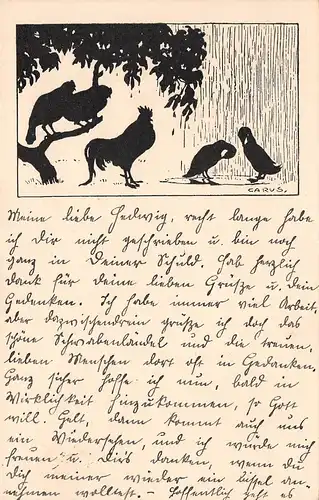 CARUS.
Meine liebe Hedwig, recht lange habe
ich Dir nicht geschrieben u. bin noch
ganz in Deiner Schuld. Hab herzlich
Dank für Deine lieben Grüsze u. Dein
Gedenken. Ich habe immer viel Arbeit,
aber dazwischendrein grüsze ich doch das
schöne Schwabenländel und die treuen,
lieben Menschen dort oft in Gedanken,
Ganz sicher hoffe ich nun, bald in
Wirklichkeit hinzukommen, so Gott
will. Gelt, dann kommt auch uns
ein Wiedersehen, und ich würde mich
freuen u. Dir's danken, wenn du
Dich meiner wieder ein bissel an-
nehmen wolltest. - Hoffentlich geht es